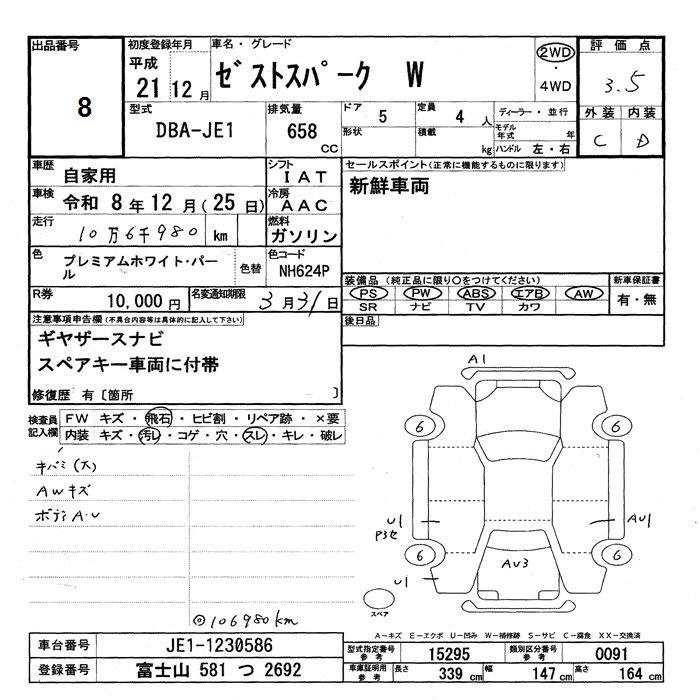 出品番号
8
初度登録年月
平成
21 12 月
車名・グレード
ゼストスパーク W
2WD
・
4WD
評価点
3.5
外装 内装
C D
型式
DBA-JE1
排気量
658
CC
ドア
5
形状
定員
4 人
積載
kg
ディーラー・並行
モデル年式 年
ハンドル 左・右
車歴
自家用
シフト
IAT
車検
令和 8 年 12 月(25 日)
冷房
AAC
走行
10万6千980 km
燃料
ガソリン
色
プレミアムホワイト・パー
ル
色替
色コード
NH624P
R券
10,000 円
名変通知期限
3月31日
セールスポイント(正常に機能するものに限ります)
新鮮車両
装備品 (純正品に限り○をつけてください)
PS PW ABS エアB AW
SR ナビ TV カワ
新車保証書
有・無
後日品
注意事項申告欄(不具合内容等は具体的に記入して下さい)
ギヤザースナビ
スペアキー車両に付帯
修復歴 有〔箇所 〕
検査員
記入欄
FW キズ・飛石・ヒビ割・リペア跡・×要
内装 キズ・汚レ・コゲ・穴・スレ・キレ・破レ
キバミ(大)
AWキズ
ボディA・U
◎106980km
A1
6
6
U1
P3セ
AU1
6
6
U1
AU3
スペア
A-キズ E-エクボ U-凹み W-補修跡 S-サビ C-腐食 XX-交換済
車台番号
JE1-1230586
登録番号
富士山 581 つ 2692
型式指定番号
参考
15295
類別区分番号
参考
0091
車庫証明用
参考
長さ
339 cm
幅
147 cm
高さ
164 cm